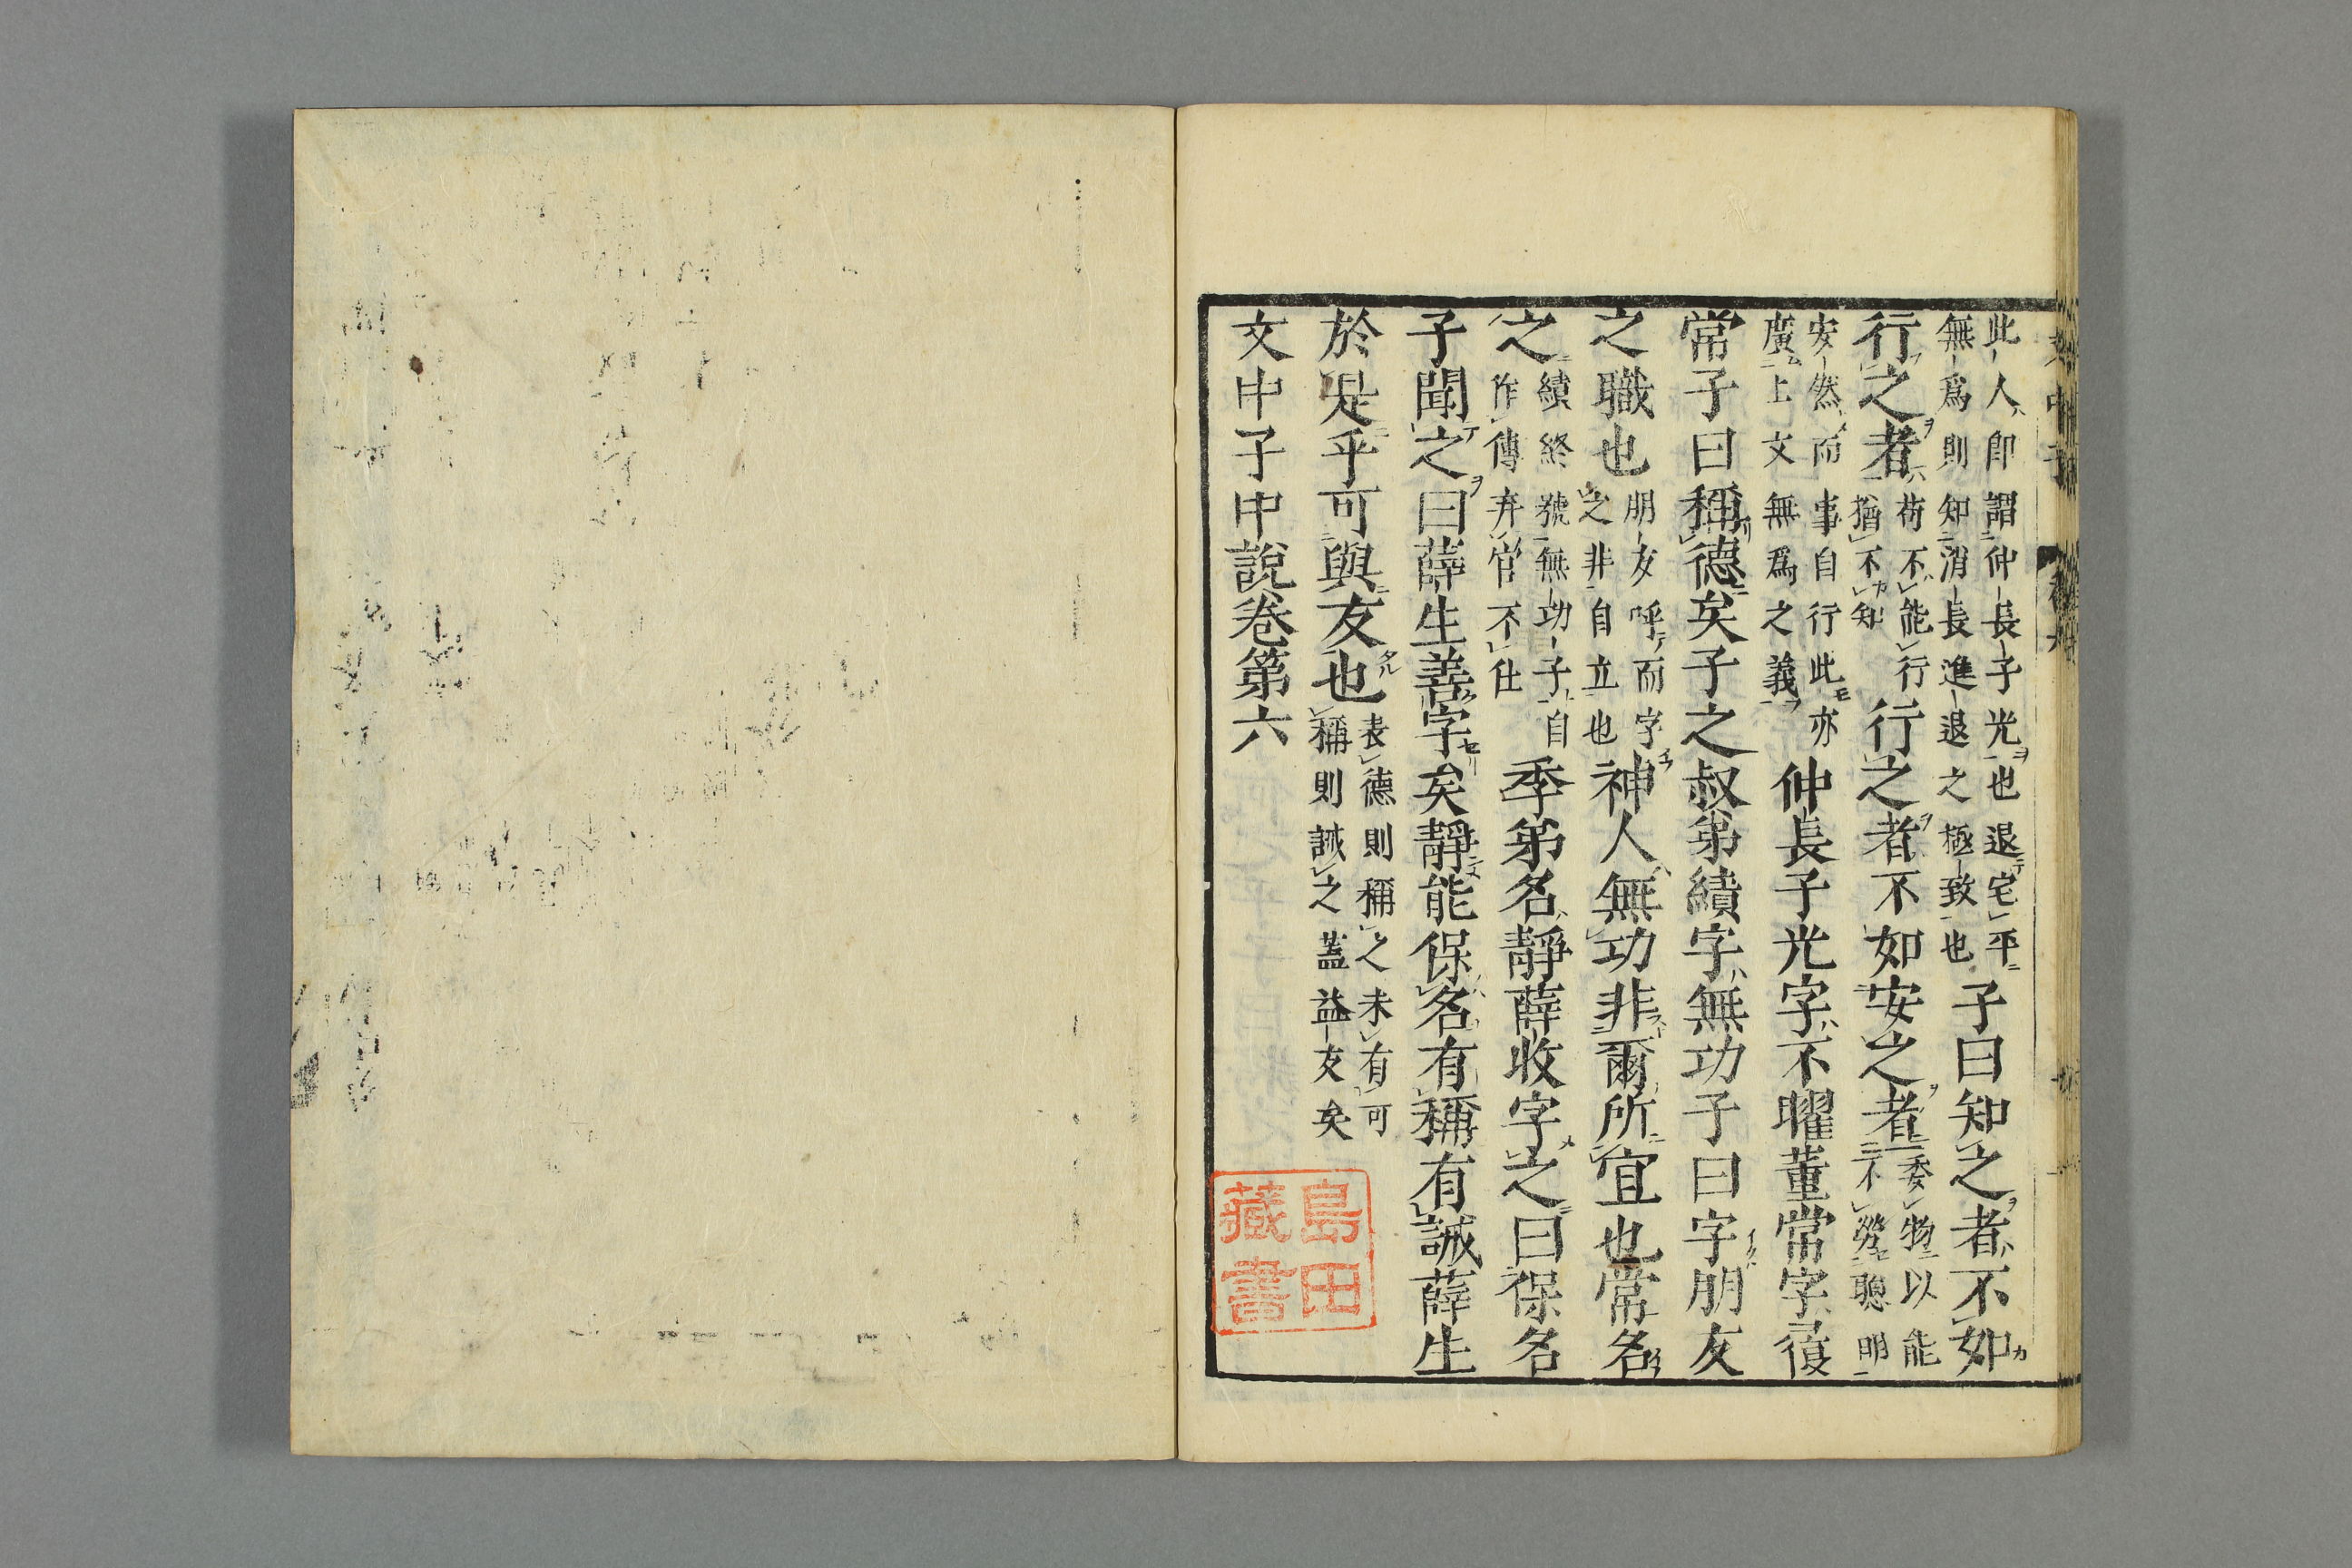 此人即謂仲長子光也退宅平
無爲則知消長進退之極致也
子曰知之者不如
行之者
苟不能行
猶不知
行之者不如安之者
委物以能
不勞聰明
安然而事自行此亦
廣上文無爲之義
仲長子光字不曜董常字履
常子曰稱德矣子之叔弟績字無功子曰字朋友
之職也
朋友呼而字
之非自立也
神人無功非爾所宜也常名
之
績終號無功子自
作傳弃官不仕
季弟名靜薛收字之曰保名
子聞之曰薛生善字矣靜能保名有稱有誡薛生
於是乎可與友也
表德則稱之未有可
稱則誡之蓋益友矣
文中子中說卷第六
島田
藏書